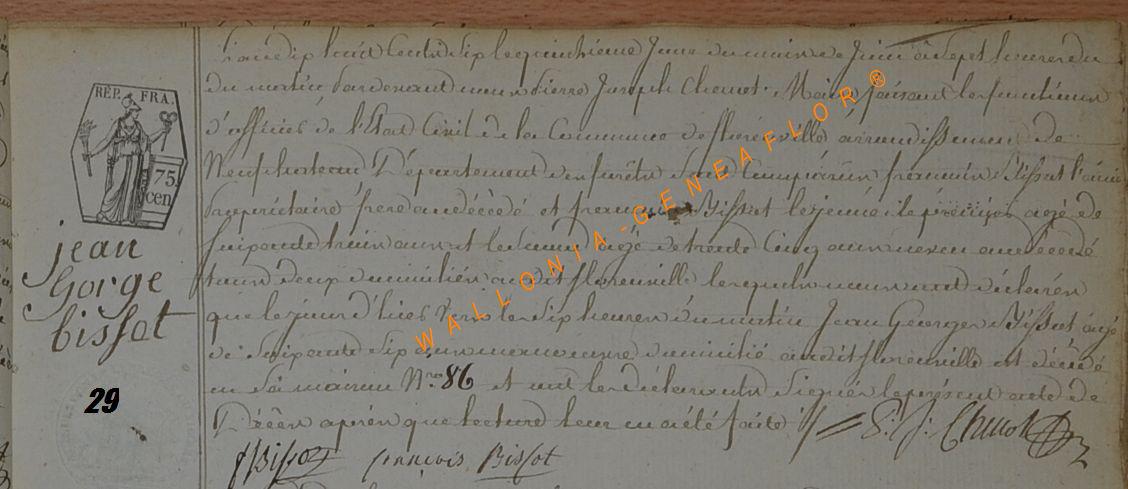 L'an dix huit Cent dix le quinzieme Jour du mois de Juin à Sept heures du
du matin Pardevant nous Pierre Joseph Chenot Maire faisant les fonctions
d'officier de l'Etat Civil de la Commune de florenville arrondissement de
Neufchateau Département des forêts Sont Comparus francois Bissot l'ainé
Propriétaire frere au décédé et francois Bissot le jeune le premier agé de
Soixante huit ans et le Second agé de trente Cinq ans neveu au décédé
tous deux domiciliés audit florenville lesquels nous ont déclarés
que le jour d'hier vers les dix heures du matin Jean George Bissot agé
de Soixante dix ans domicilié audit florenville est décédé
en Sa maison Nro 86 et ont les déclarants Signés le présent acte de
Décès après que lecture leur en a été faite P. J. Chenot
f Bissot françois Bissot
RÉP. FRA.
75
cen
jean
Gorge
bissot
29
WALLONIA-GENEAFLOR®